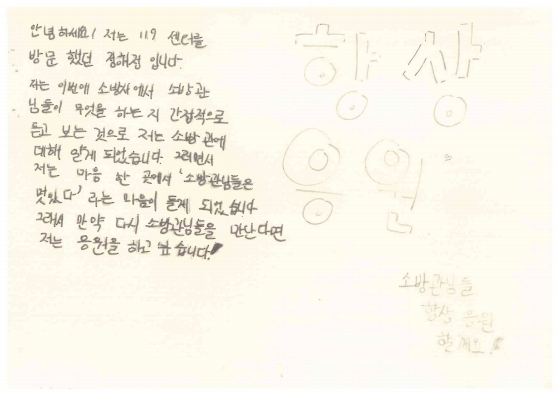 안녕하세요! 저는 119 센터를
방문 했던 정해정 입니다.
저는 이번에 소방서에서 소방관
님들이 무엇을 하는 지 간접적으로
듣고 보는 것으로 저는 소방관에
대해 알게 되었습니다. 그러면서
저는 마음 한 곳에서 '소방관님들은
멋있다' 라는 마음이 들게 되었습니다
그래서 만약 다시 소방관님들을 만난다면
저는 응원를 하고 싶습니다!
항상
응원
소방관님들
항상 응원
할게요!